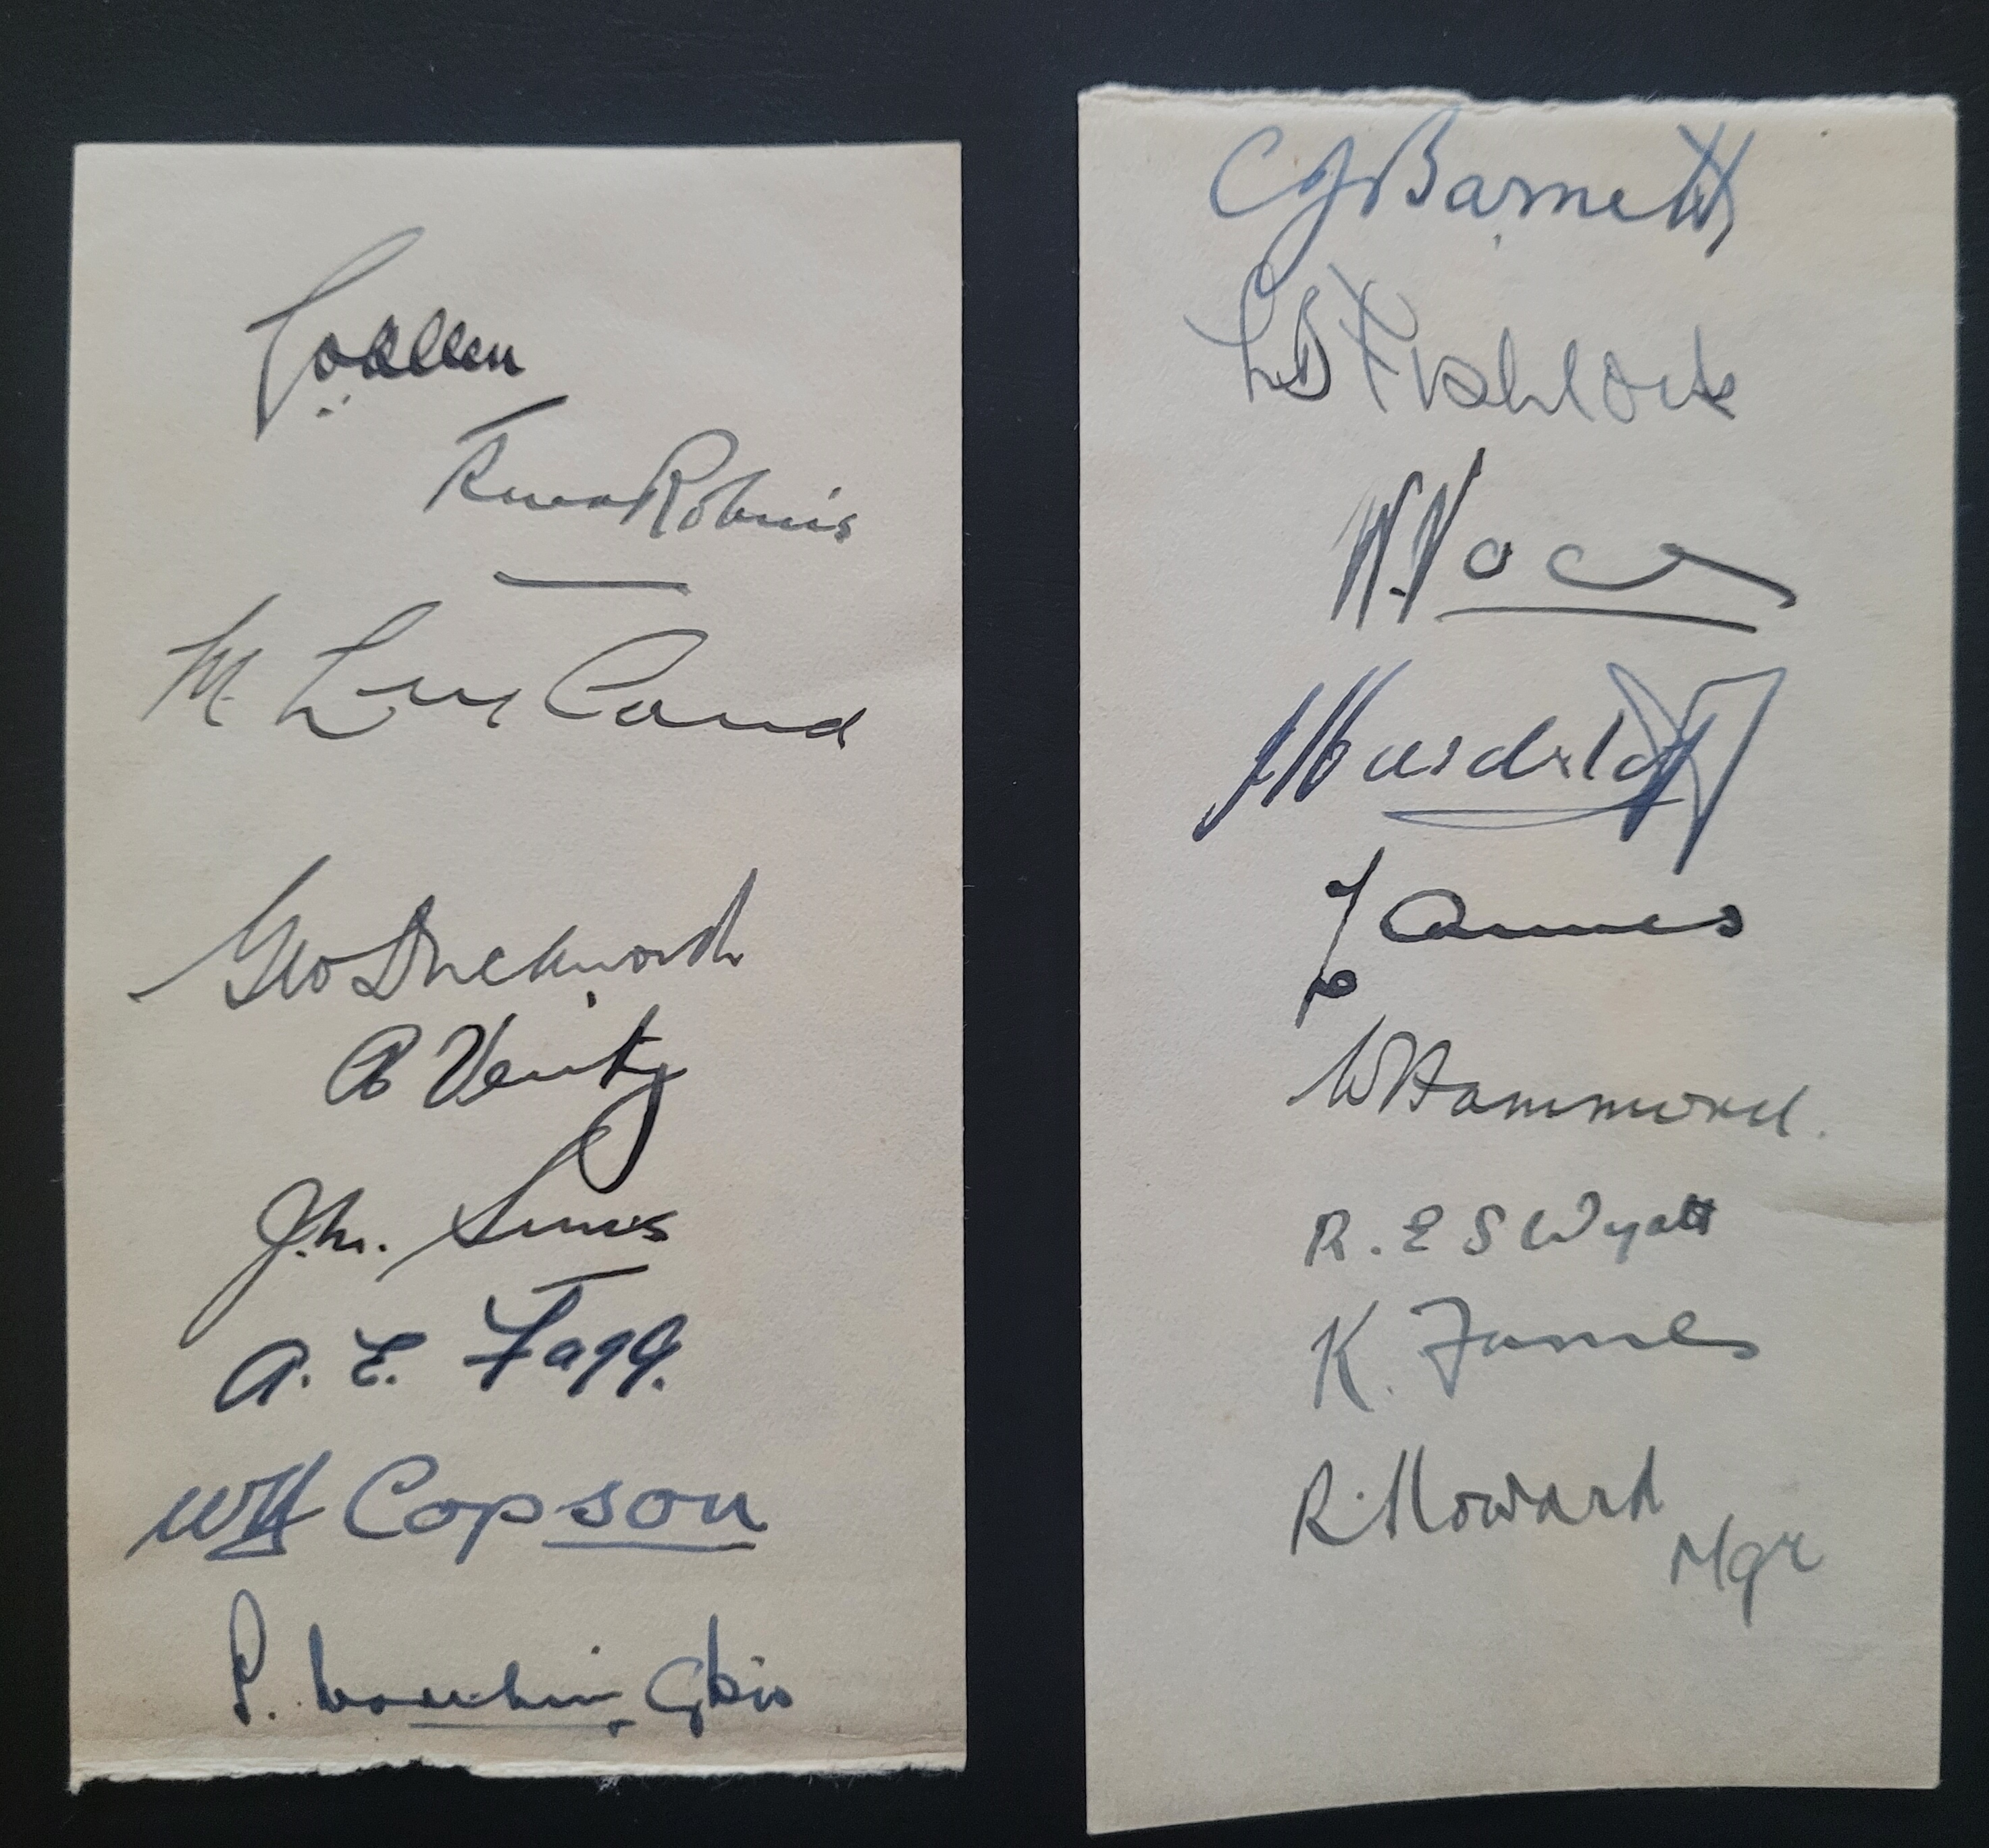 G O Allen
R W V Robins
M Leyland
Geo Duckworth
H Verity
J.M. Sims
A. E. Fagg.
WH Copson
T. Worthington
C J Barnett
L B Fishlock
W. Voce
J Hardstaff
L Ames
W Hammond.
R. E S Wyatt
K. James
R. Howard
Mgr